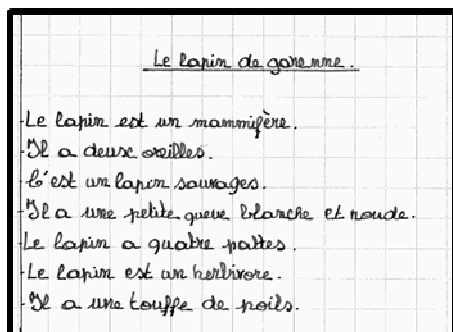 Le lapin de garenne.
-Le lapin est un mammifère.
-Il a deux oreilles.
-C'est un lapin sauvages.
-Il a une petite queue blanche et ronde.
-Le lapin a quatre pattes.
-Le lapin est un herbivore.
-Il a une touffe de poils.